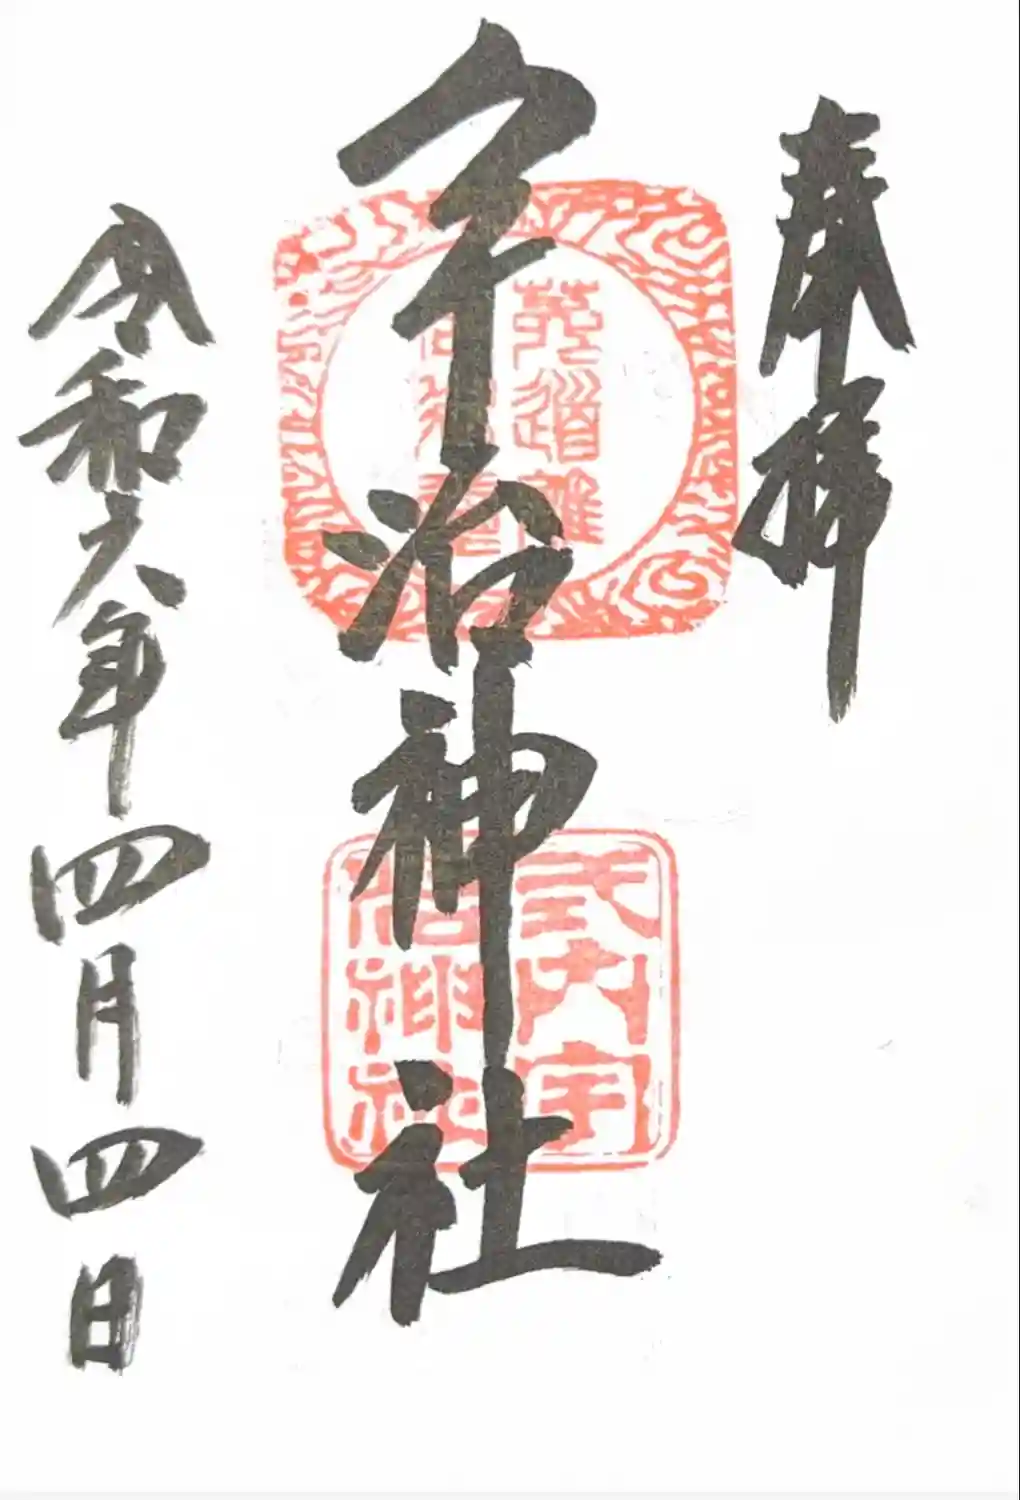 奉拝
宇治神社
菟道稚
式内宇
治神社
令和六年四月四日